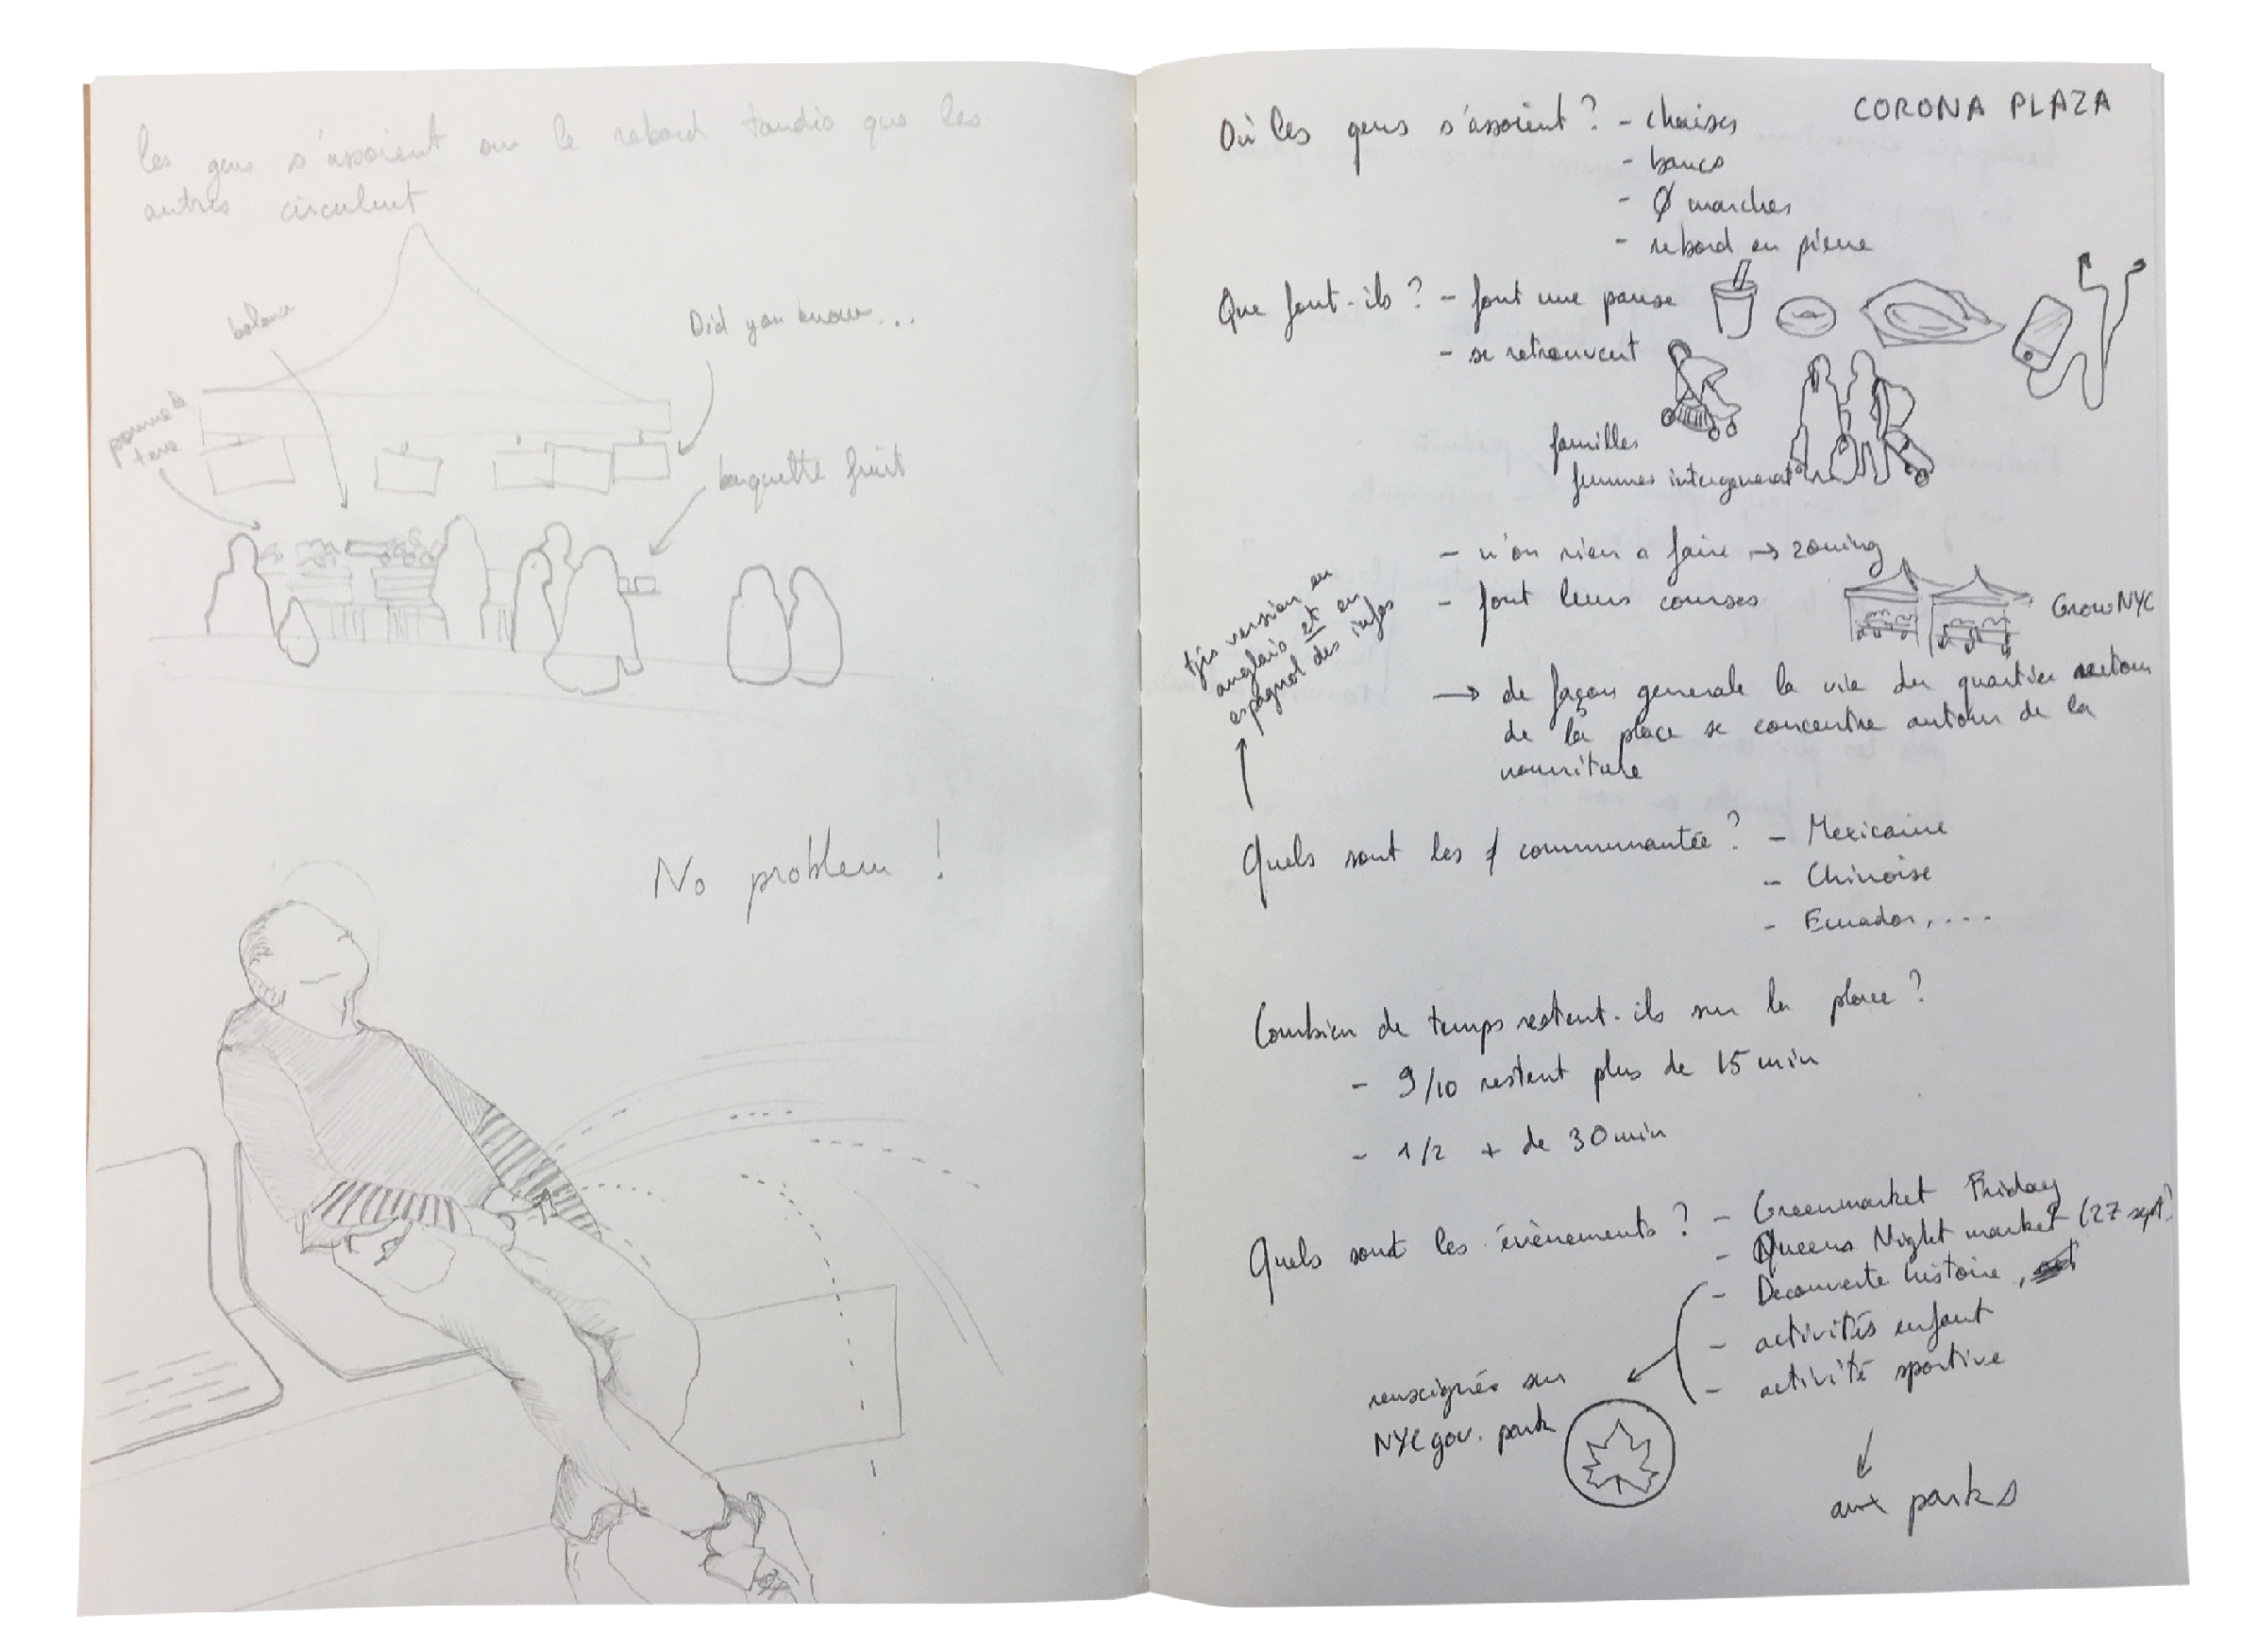 les gens s'assoient sur le rebord tandis que les
autres circulent
balance
Did you know...
pomme de
terre
barquette fruit
No problem !
CORONA PLAZA
Où les gens s'assoient ? - chaises
- bancs
- Ø marches
- rebord en pierre
Que font-ils ? - font une pause
- se retrouvent
familles
femmes intergenerat°
- n'on rien a faire → zoning
- font leurs courses
GrowNYC
→ de façon generale la vie du quartier autour
de la place se concentre autour de la
nourriture
tjs version en
anglais et en
espagnol des infos
Quels sont les ≠ communautée ? - Mexicaine
- Chinoise
- Ecuador, ....
Combien de temps restent-ils sur la place ?
- 9/10 restent plus de 15 min
- 1/2 + de 30 min
Quels sont les évènements ? - Greenmarket Friday
- Queens Night market (27 sept)
- Decouverte histoire,
- activités enfant
- activité sportive
renseignés sur
NYC gov. park
aux parks